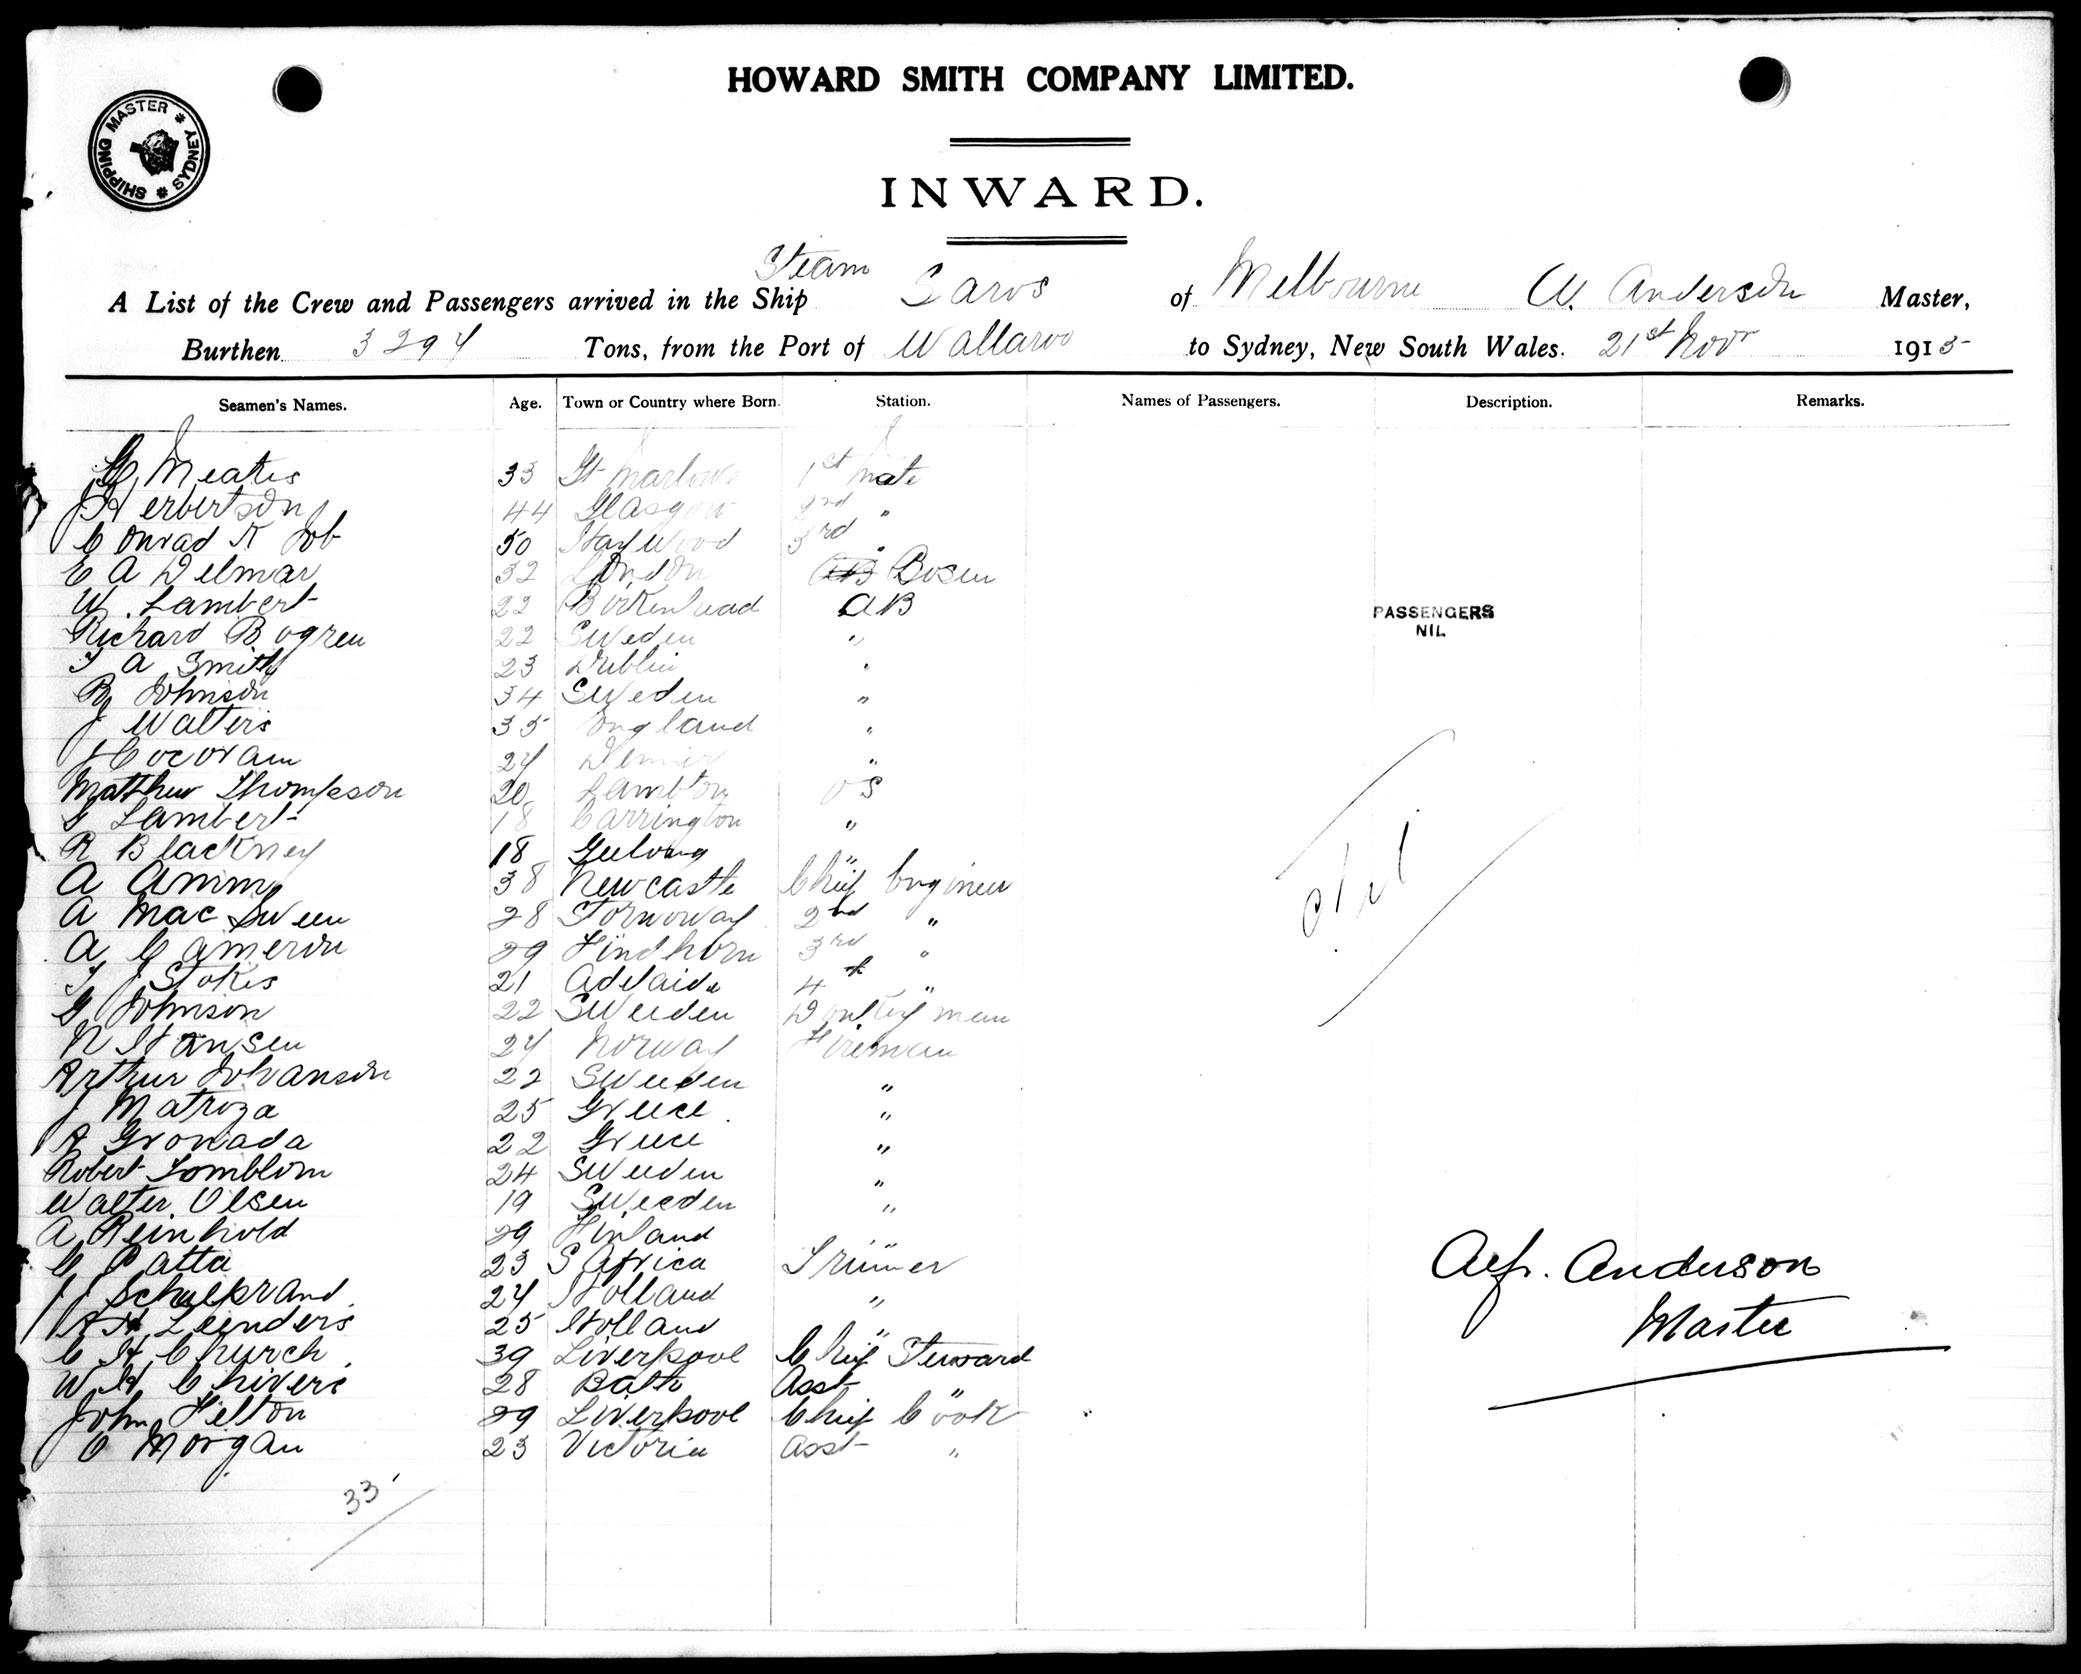 HOWARD SMITH COMPANY LIMITED.
SHIPPING MASTER * SYDNEY *
INWARD.
Steam
A List of the Crew and Passengers arrived in the Ship Saros of Melbourne A. Anderson Master,
Burthen 3294 Tons, from the Port of Wallaroo to Sydney, New South Wales. 21st Novr 1915
Seamen's Names. Age. Town or Country where Born. Station. Names of Passengers. Description. Remarks.
Meates 33 Gt Marlow 1st Mate
J Herbertson 44 Glasgow 2nd "
Conrad K Job 50 Haywood 3rd "
E A Delmar 32 London AB Bosen
W. Lambert 22 Birkenhead AB
Richard Bogren 22 Sweden "
T A Smith 23 Dublin "
R Johnson 34 Sweden "
J Walters 35 England "
J Cocoram 24 "
Matthew Thompson 20 Lambton OS
G Lambert 18 Carrington "
R Blackney 18 Geelong "
A Amm 38 Newcastle Chief Engineer
A MacSween 28 Stornoway 2nd "
A Cameron 29 Findhorn 3rd "
T J Stokes 21 Adelaide 4th "
G Johnson 22 Sweeden Donkeyman
N Hansen 24 Norway Fireman
Arthur Johanson 22 Sweeden "
J Matroza 25 Greece "
A Gronada 22 Greece "
Robert Tomblom 24 Sweeden "
Walter Olsen 19 Sweeden "
A Reinhold 29 Finland "
C Patta 23 S Africa Trimer
J J Schulprand 24 Holland "
A H Leenders 25 Holland "
C H Church 39 Liverpool Chief Steward
W H Chivers 28 Bath Asst "
John Felton 29 Liverpool Chief Cook
O Morgan 23 Victoria Asst "
33
PASSENGERS
NIL
Nil
Alf. Anderson
Master